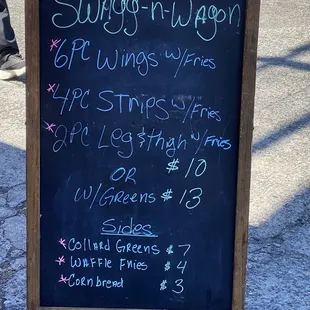 Swagg-n-Wagon
*6PC Wings w/Fries
*4PC Strips w/Fries
*2PC Leg & thigh w/Fries
$10
OR
w/Greens $13
Sides
*Collard Greens $7
*Waffle Fries $4
*Cornbread $3